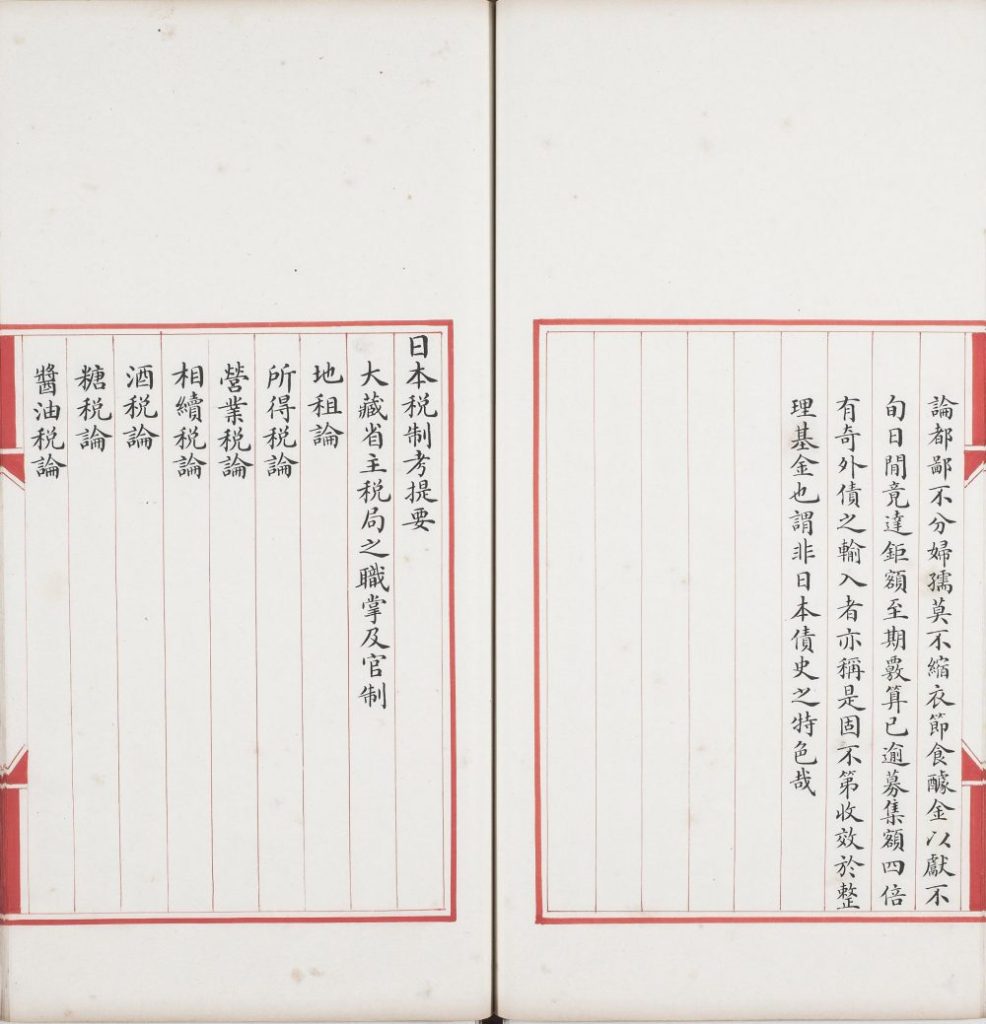 論都鄙不分婦孺莫不縮衣節食醵金以獻不
旬日閒竟達鉅額至期覈算已逾募集額四倍
有奇外債之輸入者亦稱是固不第收效於整
理基金也謂非日本債史之特色哉
日本税制考提要
大藏省主税局之職掌及官制
地租論
所得税論
營業税論
相續税論
酒税論
糖税論
醬油税論